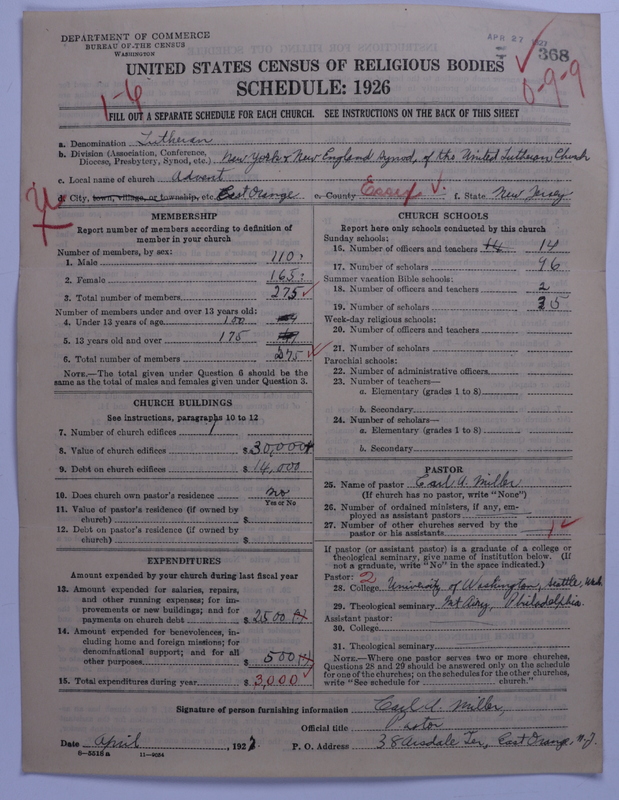 DEPARTMENT OF COMMERCE
BUREAU OF THE CENSUS
WASHINGTON
APR 27 1927
368
UNITED STATES CENSUS OF RELIGIOUS BODIES
SCHEDULE: 1926
1-6
0-9-9
FILL OUT A SEPARATE SCHEDULE FOR EACH CHURCH. SEE INSTRUCTIONS ON THE BACK OF THIS SHEET
a. Denomination Lutheran
b. Division (Association, Conference, Diocese, Presbytery, Synod, etc.) New York & New England Synod, of the United Lutheran Church
c. Local name of church Advent
d. City, town, village, or township, etc. East Orange e. County Essex f. State New Jersey
MEMBERSHIP
Report number of members according to definition of
member in your church
Number of members, by sex:
1. Male 110
2. Female 165
3. Total number of members 275
Number of members under and over 13 years old:
4. Under 13 years of age 100
5. 13 years old and over 175
6. Total number of members 275
NOTE.—The total given under Question 6 should be the
same as the total of males and females given under Question 3.
CHURCH BUILDINGS
See instructions, paragraphs 10 to 12
7. Number of church edifices 1
8. Value of church edifices $ 30,000
9. Debt on church edifices $ 14,000
10. Does church own pastor's residence no
Yes or No
11. Value of pastor's residence (if owned by
church) $
12. Debt on pastor's residence (if owned by
church) $
EXPENDITURES
Amount expended by your church during last fiscal year
13. Amount expended for salaries, repairs,
and other running expenses; for im-
provements or new buildings; and for
payments on church debt $ 2500
14. Amount expended for benevolences, in-
cluding home and foreign missions; for
denominational support; and for all
other purposes $ 500
15. Total expenditures during year $ 3,000
CHURCH SCHOOLS
Report here only schools conducted by this church
Sunday schools:
16. Number of officers and teachers 14 14
17. Number of scholars 96
Summer vacation Bible schools:
18. Number of officers and teachers 2
19. Number of scholars 35
Week-day religious schools:
20. Number of officers and teachers
21. Number of scholars
Parochial schools:
22. Number of administrative officers
23. Number of teachers—
a. Elementary (grades 1 to 8)
b. Secondary
24. Number of scholars—
a. Elementary (grades 1 to 8)
b. Secondary
PASTOR
25. Name of pastor Carl A. Miller
(If church has no pastor, write "None")
26. Number of ordained ministers, if any, em-
ployed as assistant pastors
27. Number of other churches served by the
pastor or his assistants 1
If pastor (or assistant pastor) is a graduate of a college or
theological seminary, give name of institution below. (If
not a graduate, write "No" in the space indicated.)
Pastor: 2
28. College University of Washington, Seattle, Wash.
29. Theological seminary Mt Airy, Philadelphia
Assistant pastor:
30. College
31. Theological seminary
NOTE.—Where one pastor serves two or more churches,
Questions 28 and 29 should be answered only on the schedule
for one of the churches; on the schedules for the other churches,
write "See schedule for church."
Signature of person furnishing information Carl A. Miller,
Official title Pastor
Date April, 1927 P. O. Address 38 Arsdale Ter, East Orange, N.J.
8-5518 a 11-9034